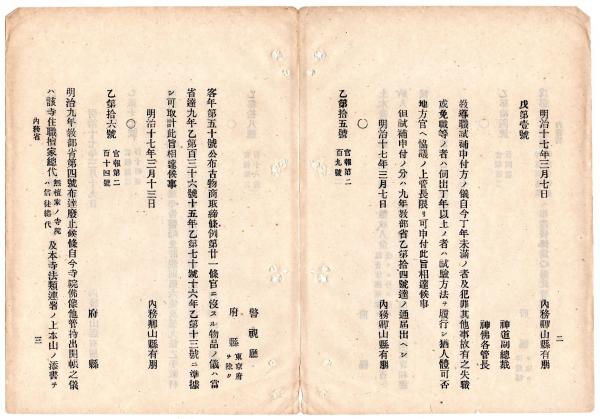 二
明治十七年三月七日　内務卿山縣有朋
戊第壹號
神道副總裁
神佛各管長
敎導職試補申付方ノ儀自今丁年未滿ノ者及犯罪其他事故有之失職
或免職等ノ者ハ伺出丁年以上ノ者ハ試驗方法ヲ履行シ猶人體可否
地方官ヘ協議ノ上管長限リ可申付此旨相達候事
但試補申付ノ分ハ九年敎部省乙第拾四號達ノ通屆出ヘシ
明治十七年三月七日　內務卿山縣有朋
〇
乙第拾五號　官報第二百九號
警視廳
府縣　東京府ヲ除ク
客年第五十號公布古物商取締條例第廿一條官ニ沒スル物品ノ儀ハ當
省達九年乙第百三十六號十五年乙第七十號十六年乙第十三號ニ準據
シ可取計此旨相達候事
明治十七年三月十三日　內務卿山縣有朋
〇
乙第拾六號　官報第二百十四號
府縣
明治九年敎部省第四號布達廢止候條自今寺院佛像他管持出開帳之儀
ハ該寺住職檀家總代　無檀家ノ寺院ハ信徒總代　及本寺法類連署ノ上本山ノ添書ヲ
內務省
三